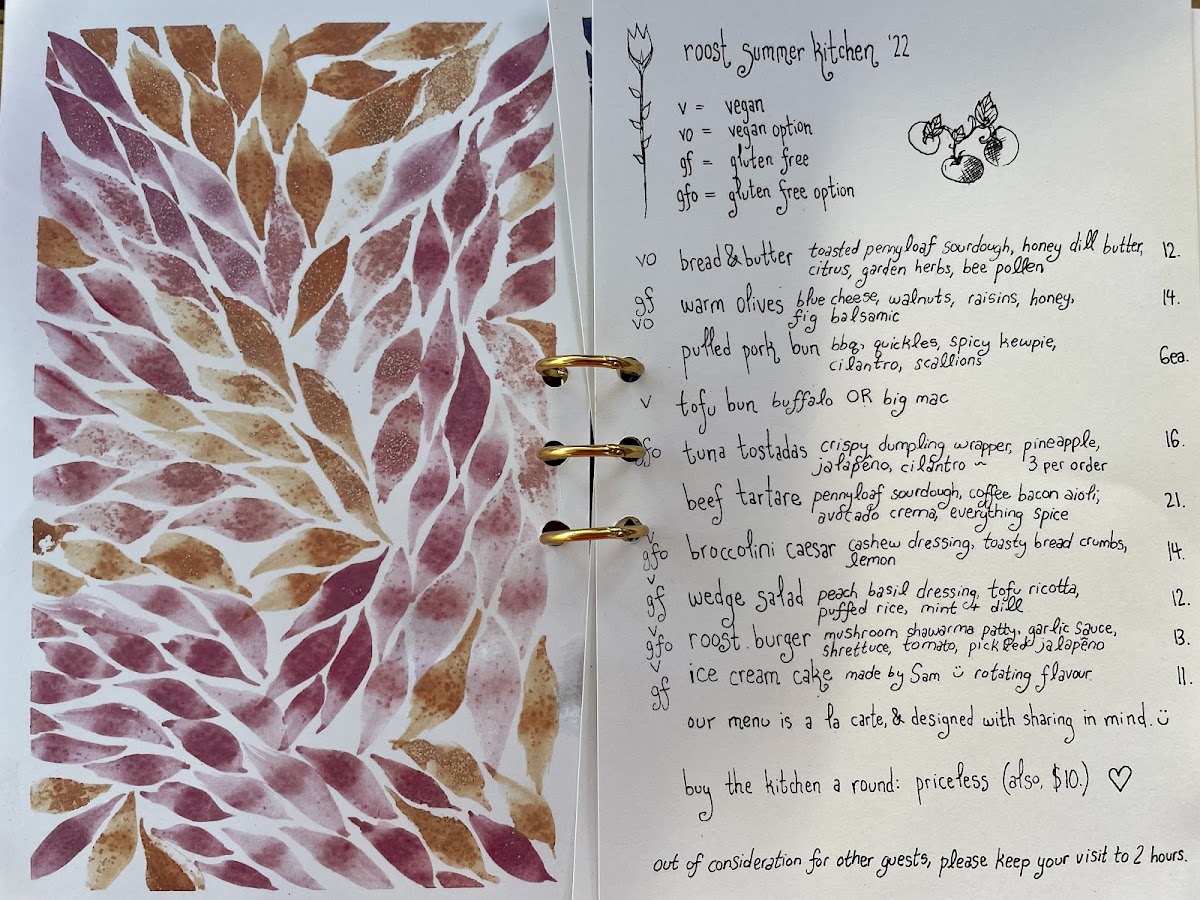 roost summer kitchen '22
v = vegan
vo = vegan option
gf = gluten free
gfo = gluten free option
vo bread & butter toasted pennyloaf sourdough, honey dill butter, 12.
citrus, garden herbs, bee pollen
gf warm olives blue cheese, walnuts, raisins, honey, 14.
vo fig balsamic
pulled pork bun bbq, quickles, spicy kewpie, 6ea.
cilantro, scallions
v tofu bun buffalo OR big mac
fo tuna tostadas crispy dumpling wrapper, pineapple, 16.
jalapeño, cilantro ~ 3 per order
beef tartare pennyloaf sourdough, coffee bacon aioli, 21.
avocado crema, everything spice
v
gfo broccolini caesar cashew dressing, toasty bread crumbs, 14.
lemon
v
gf wedge salad peach basil dressing, tofu ricotta, 12.
puffed rice, mint + dill
v
gfo roost burger mushroom shawarma patty, garlic sauce, 13.
shrettuce, tomato, pickled jalapeño
v
gf ice cream cake made by Sam ü rotating flavour. 11.
our menu is a la carte, & designed with sharing in mind. ü
buy the kitchen a round: priceless (also, $10.) ♡
out of consideration for other guests, please keep your visit to 2 hours.